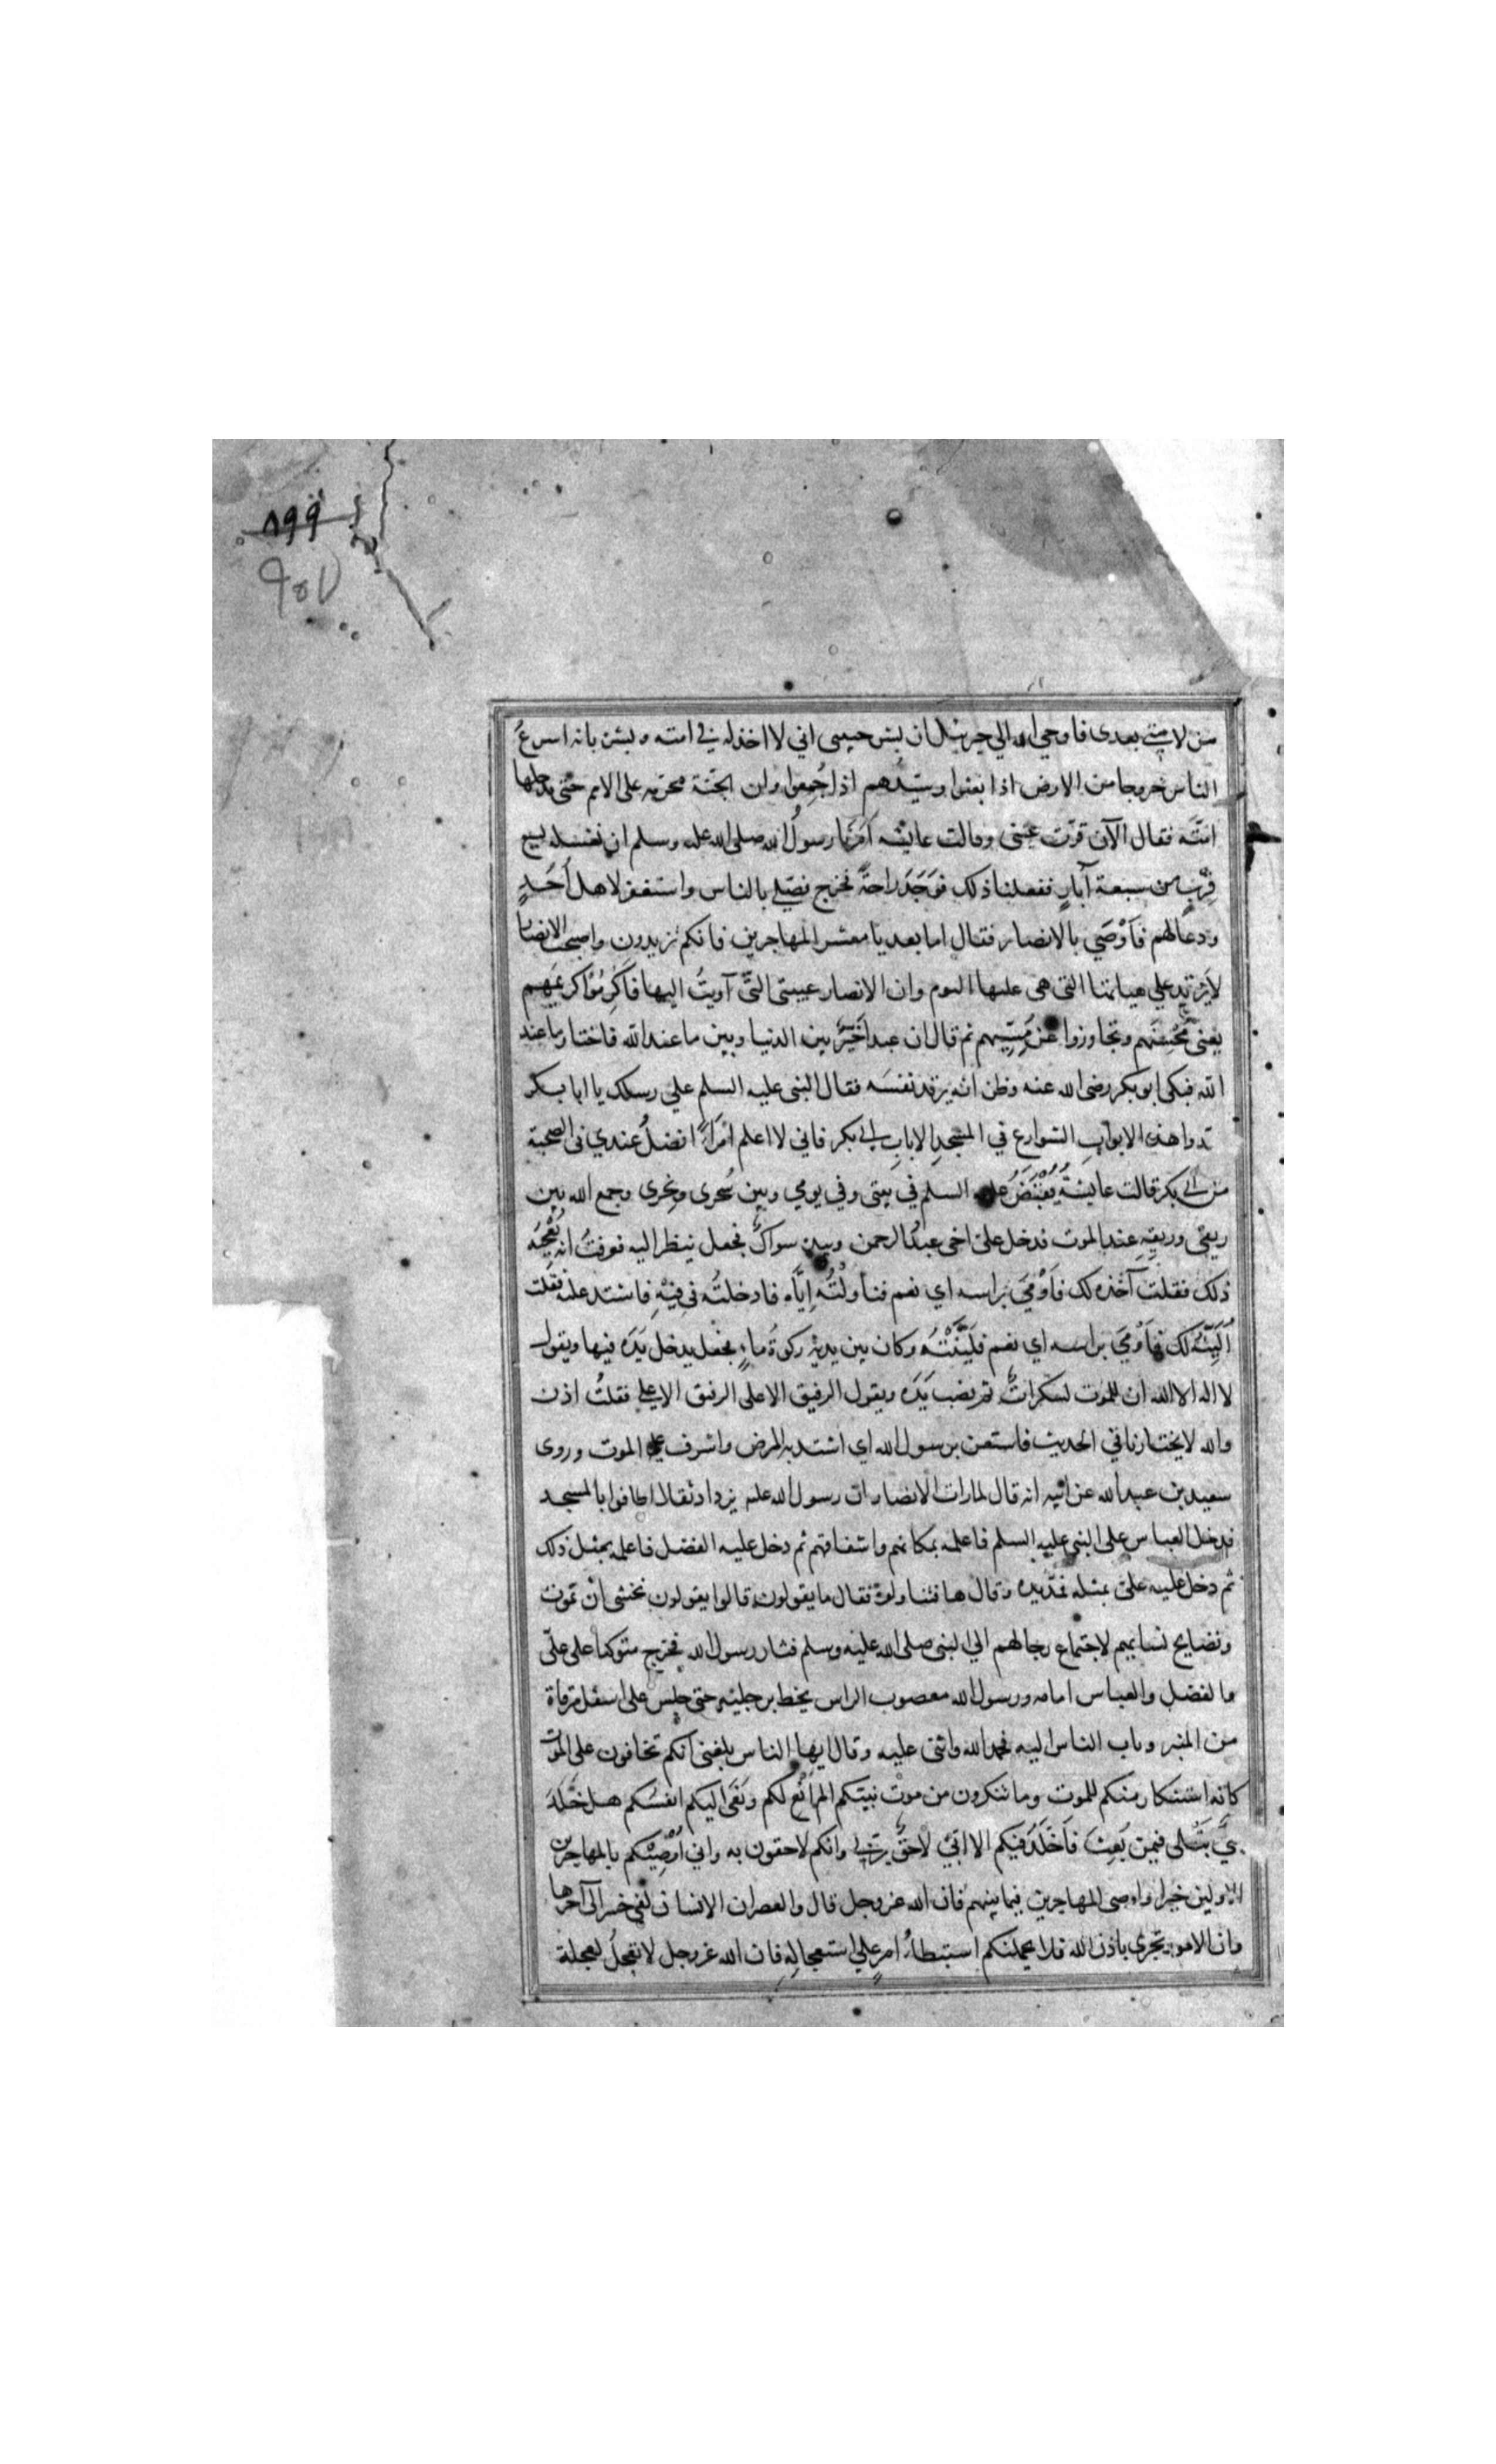 ٨٩٩
٩٥٧
من لامتي بعدى فاوحي الله الي جبرئيل ان بشر حبيبى اني لا اخذله في امته وبشره بانه اسرعُ
الناس خروجا من الارض اذا بعثوا وسيّدهم اذا جُمِعوا وان الجنّة محرّمه على الامم حتّى يدخلها
امّته فقال الآن قرّت عينى وقالت عايشه اَمَرَنا رسولُ الله صلى الله عليه وسلم ان نغسله بسبع
قِرَبٍ من سبعة آبارٍ ففعلنا ذلك فوَجَدَ راحةً فخرج فصلي بالناس واستغفر لاهل اُحُدٍ
ودعا لهم فاَوْصَي بالانصار فقال اما بعد يا معشر المهاجرين فانكم تزيدون واصبحت الانصار
لا تزيد علي هياتها التى هى عليها اليوم وان الانصار عيبتى التّى آويتُ اليها فاَكرِمُوا كريمَهم
يعنى مُحسِنَهم وتجاوزوا عن مُسِيئهم ثم قال ان عبدا خُيّرَ بين الدنيا وبين ما عند الله فاختار ما عند
الله فبكى ابو بكر رضى الله عنه وظن انّه يريد نفسَه فقال النبى عليه السلم علي رسلك يا ابا بكر
سدوا هذه الابواب الشوارع في المسجدِ الا بابِ ابي بكر فاني لا اعلم امرَأً افضلُ عندي فى الصحبة
من ابي بكر قالت عايشةُ فقُبِضَ عليه السلم في بيتى وفي يومي وبين سَحرى ونحرى وجمع الله بين
ريقى وريقِهِ عند الموت فدخل علىّ اخى عبدُ الرحمن وبيده سواكٌ فجعل ينظر اليه فعرفتُ انه يُعْجِبُه
ذلك فقلت آخذه لك فاَوْمَىَ براسه اي نعم فناولْتُه اِيّاه فادخلتُه فى فِيْهِ فاشتد عليه فقلت
اُلَيّنُه لك فاَوْمَىَ براسه اي نعم فلَيَّنْتُه وكان بين يديْه ركوةُ ماءٍ فجعل يدخل يَدَه فيها ويقول
لا اله الا الله ان للموت لسكراتٌ ثم نصب يَدَه ويقول الرفيق الاعلى الرفيق الاعلي فقلتُ اذن
والله لا يختارنا في الحديث فاستعن برسول الله اي اشتد به المرض واشرف على الموت وروى
سعيد بن عبد الله عن ابيه انه قال لما رات الانصار ان رسول الله عليه يزداد ثقلا اطافوا بالمسجد
فدخل العباس على النبى عليه السلم فاعلمه بمكانهم واشفاقهم ثم دخل عليه الفضل فاعلمه بمثل ذلك
ثم دخل عليه علىّ بمثله فمدّ يده وقال ها فتناولوه فقال ما يقولون قالوا يقولون نخشى ان تموت
وتصايح نساءهم لاجتماع رجالهم الي النبى صلى الله عليه وسلم فثار رسول الله فخرج متوكيا على علىّ
والفضل والعباس امامه ورسول الله معصوب الراس يخط برجليه حتى جلس على اسفل مرقاة
من المنبر وثاب الناس اليه فحمد الله واثنى عليه وقال ايها الناس بلغنى انكم تخافون على الموت
كانه استنكار منكم للموت وما تنكرون من موت نبيّكم الم اُنْعَ لكم وتُنْعَى اليكم انفسُكم هل خُلّدَ
نبيٌّ قبلى فيمن بُعِث فاُخَلَّدَ فيكم الا انّي لاحقٌ بربّي وانكم لاحقون به واني اُوْصِيْكم بالمهاجرين
الاولين خيرا واوصى المهاجرين فيما بينهم فان الله عز وجل قال والعصر ان الانسان لفى خسر الى آخرها
وان الامور تجرى باذن الله فلا يحملنكم استبطاءُ امرٍ علي استعجالِهِ فان الله عز وجل لا يعجلُ لعجلة